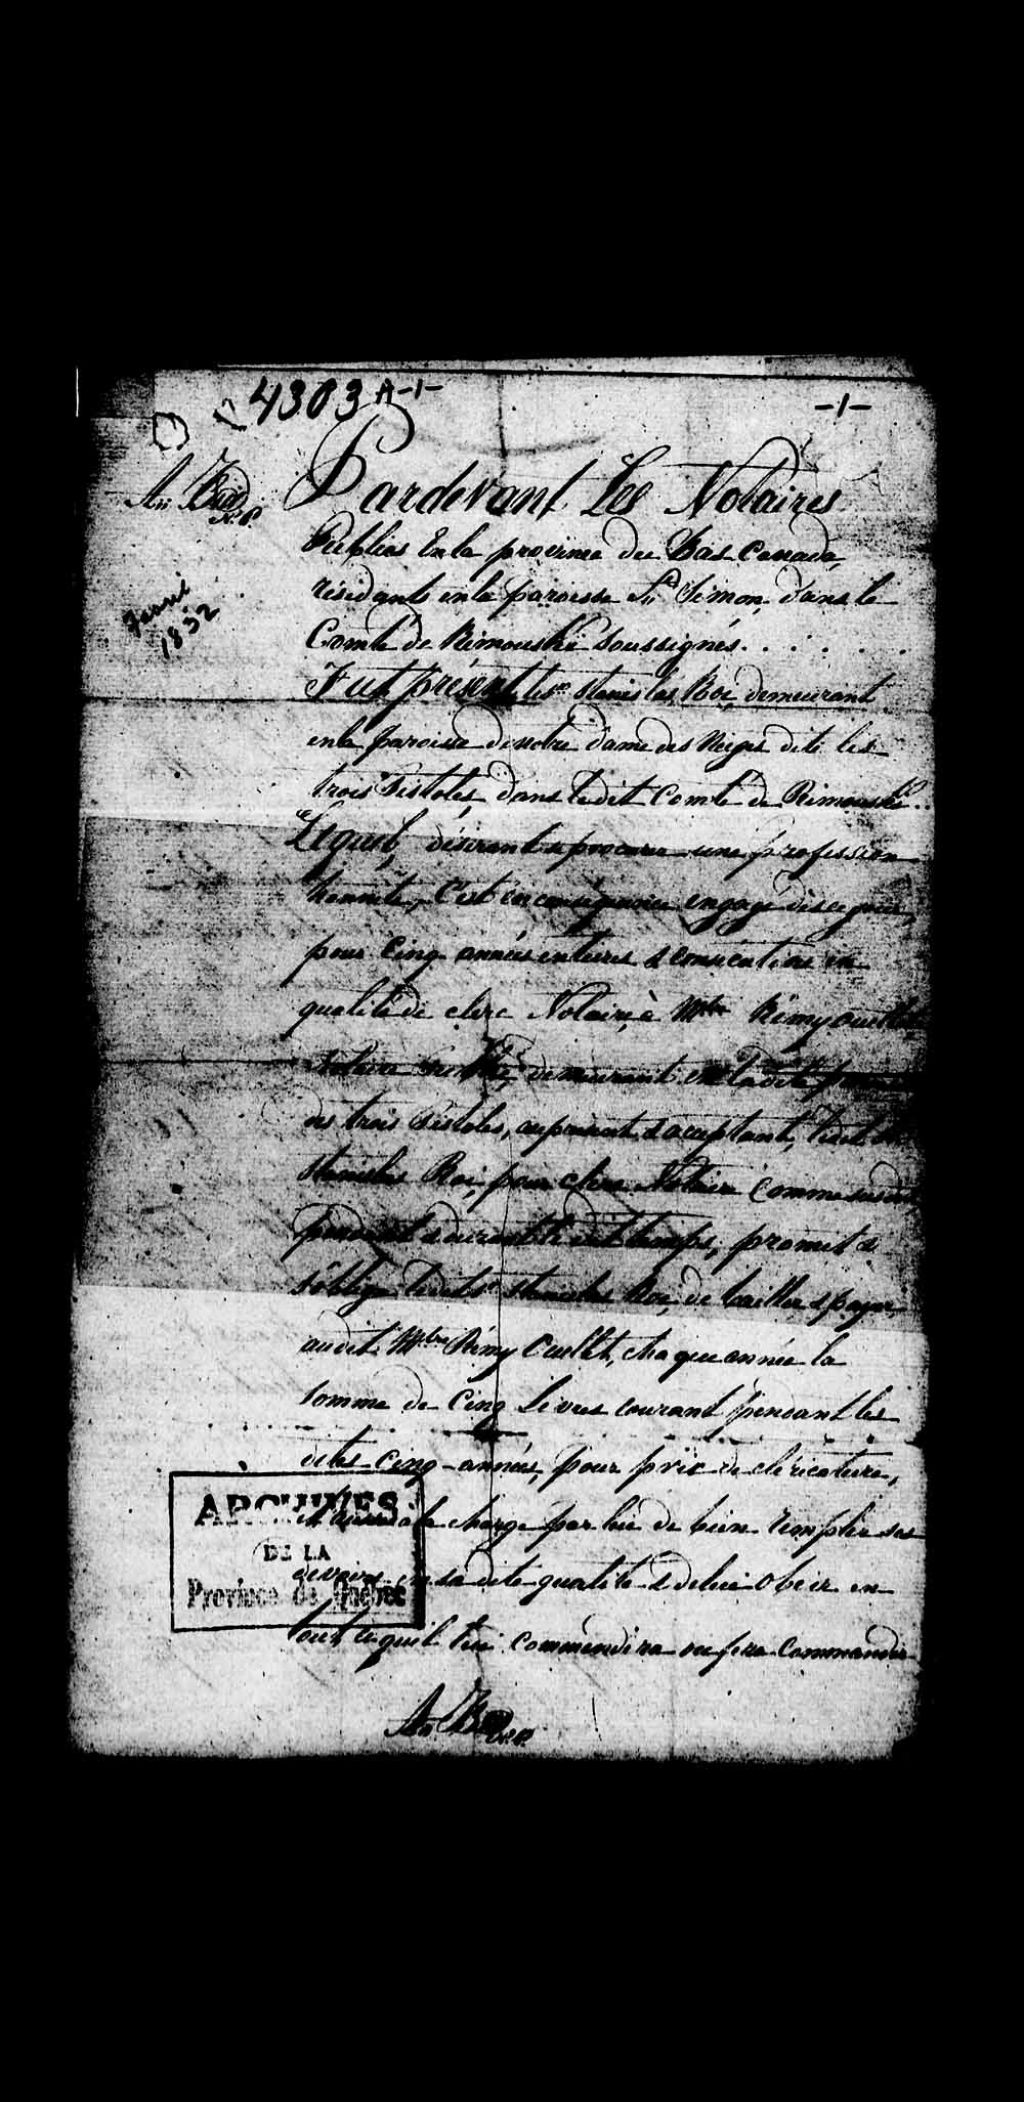 4303 A-1-
-1-
Pardevant Les Notaires
Publics En la province du Bas Canada,
résidants en la paroisse St Simon, dans le
Comté de Rimouski Soussignés. . . . . .
Fut présent le Sr Stanislas Roi, demeurant
en la paroisse de notre dame des Neiges dite les
trois Pistoles, dans ledit Comté de Rimouski. .
Lequel, désirant se procurer une profession
honnête, s'est en conséquence engagé dès ce jour,
pour cinq années entières & consécutives en
qualité de clerc Notaire, à Mtre Rémy Ouellet
Notaire demeurant en ladite
des trois Pistoles, au présent & acceptant, ledit Sr
Stanislas Roi, pour clerc Notaire comme susdit
pendant & durant le dit temps; promet &
s'oblige ledit Sr Stanislas Roi, de bailler & payer
audit Mtre Rémy Ouellet, chaque année la
somme de Cinq Livres courant pendant les
dites cinq années, pour prix de cléricature,
et à la charge par lui de bien remplir ses
devoirs en sa dite qualité & de lui obéir en
tout ce qu'il lui commandera ou fera commander
1832
ARCHIVES
DE LA
Province de Québec